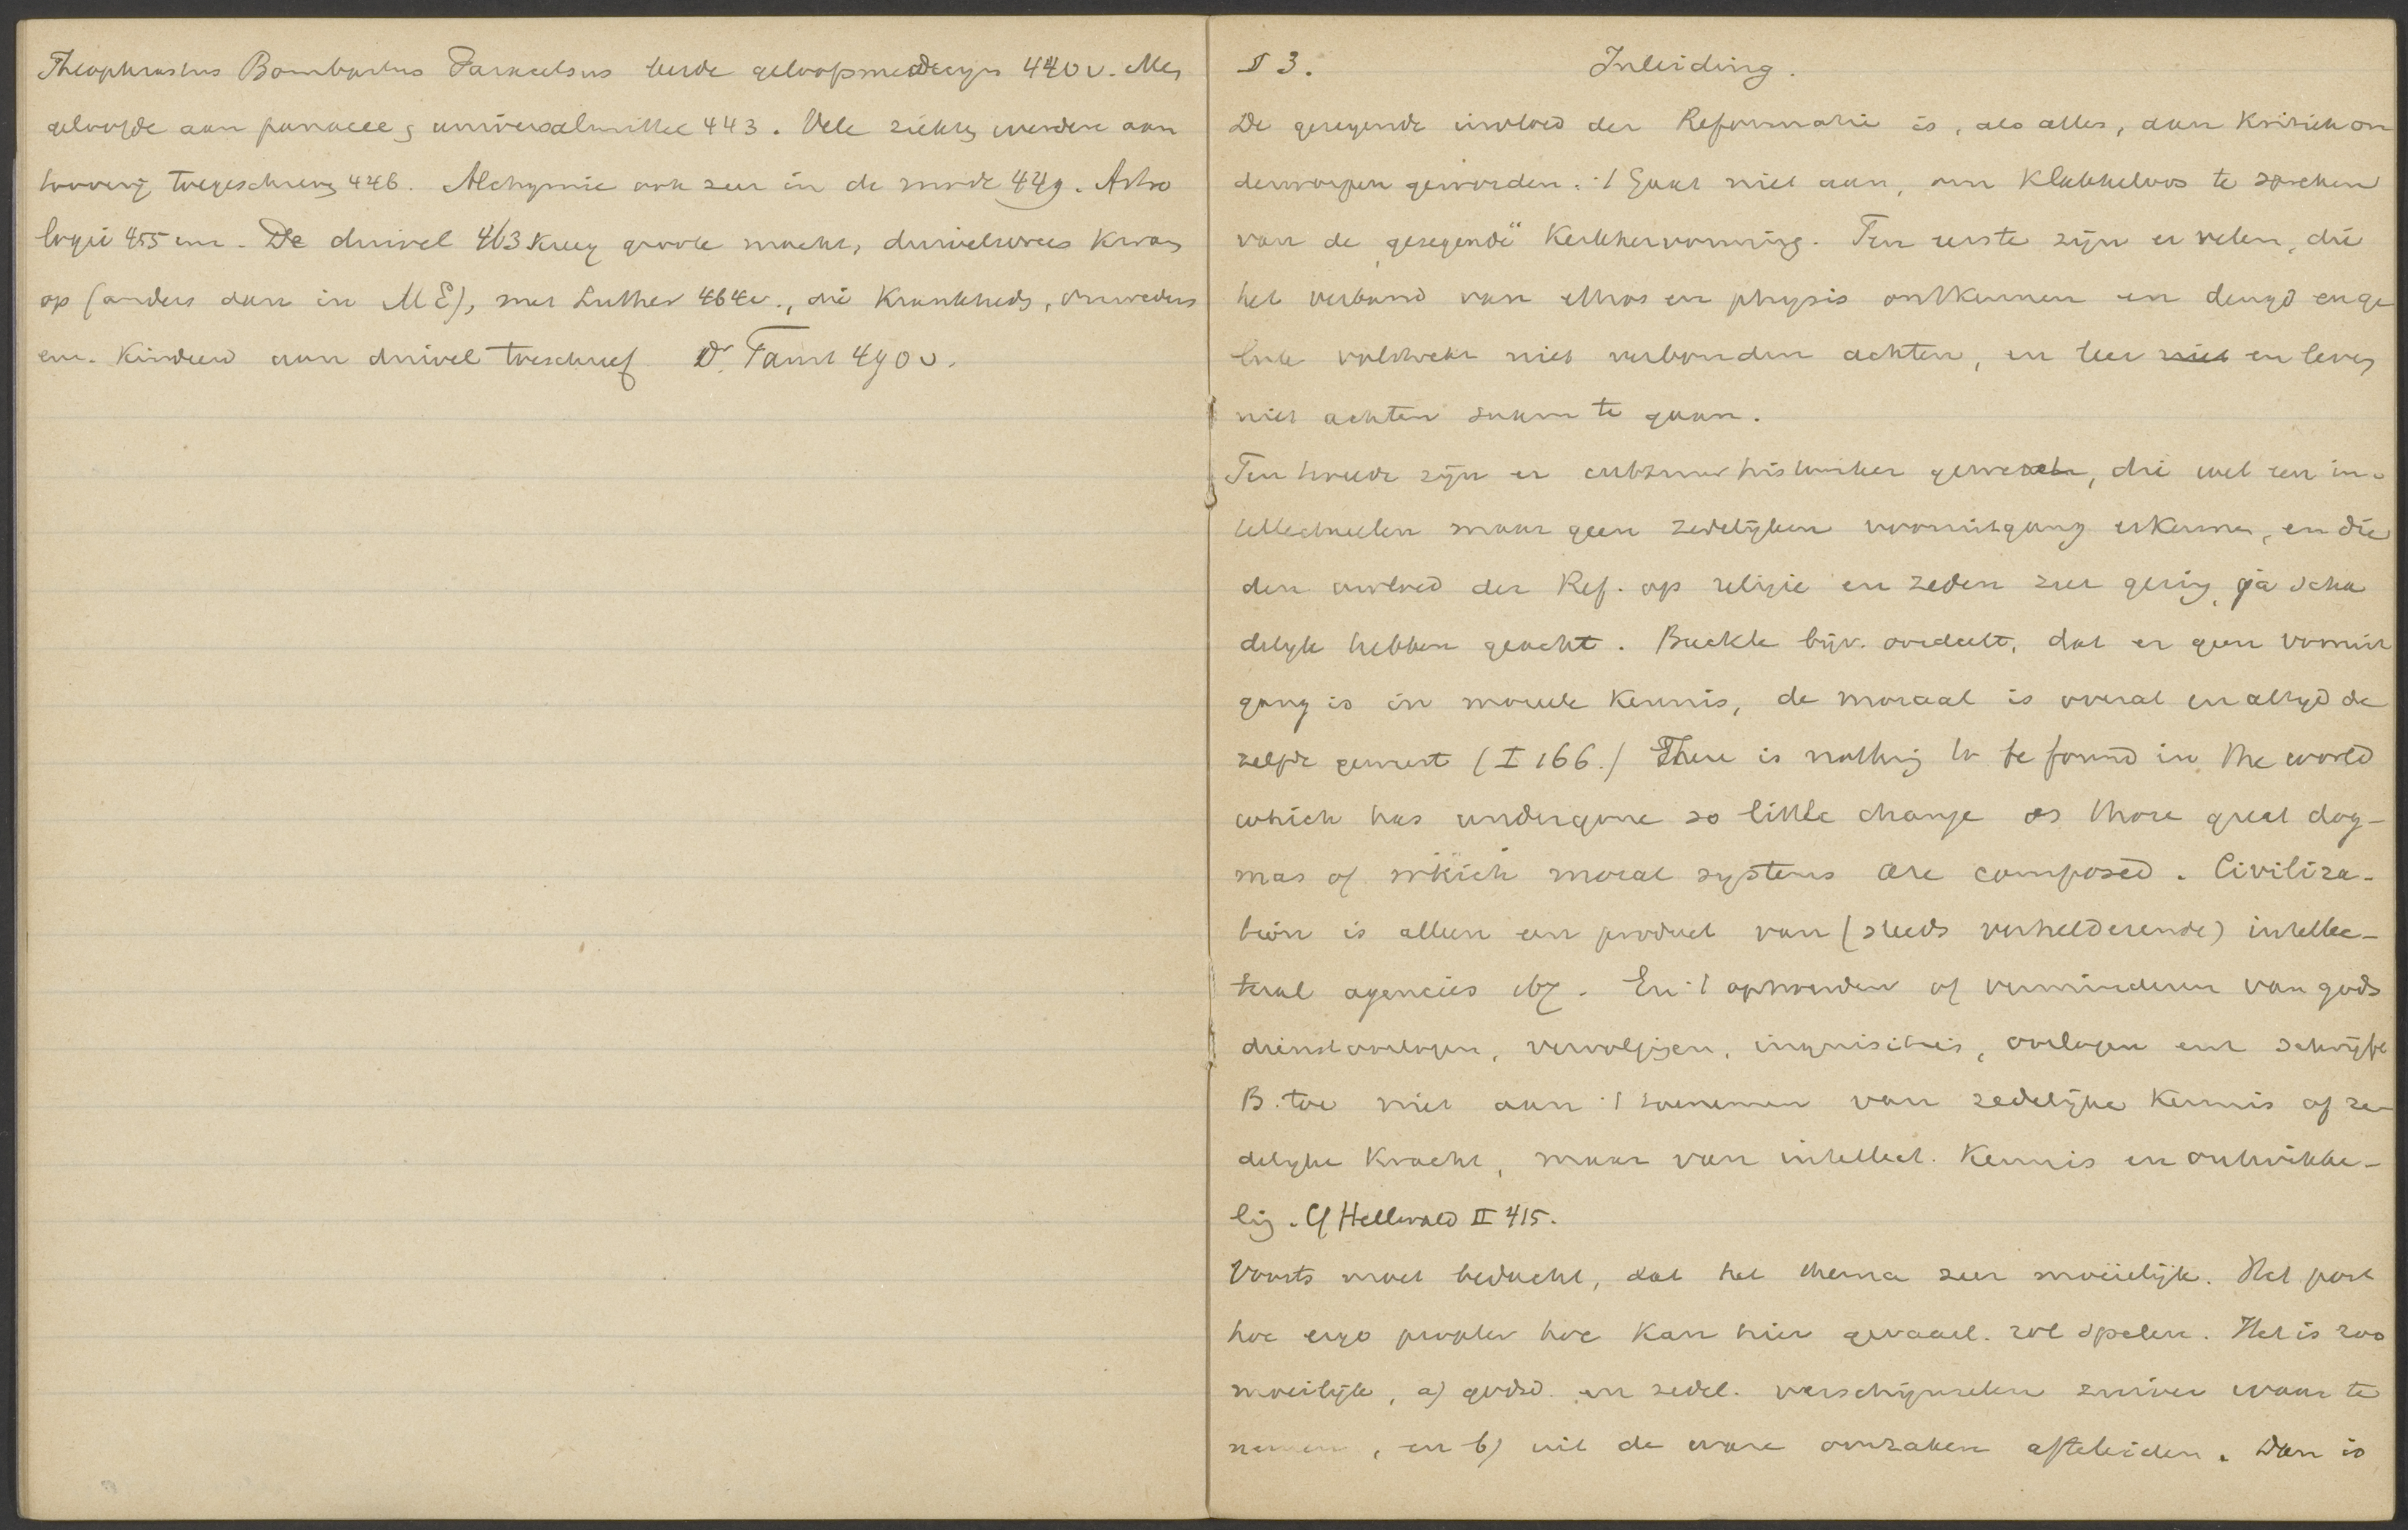 Theophrastus Bombastus Paracelsus leerde geloofsmedicijn 440 v. Men
geloofde aan panacee, universalmittel 443. Vele ziekten werden aan
toovery toegeschreven 446. Alchymie ook zeer in de mode 449. Astro
logie 455 enz. De duivel 463 kreeg groote macht, duivelvrees kwam
op (anders dan in ME), met Luther 464v., die krankheden, onweders
enz. kinderen aan duivel toeschreef Dr. Faust 490 v.
§ 3. Inleiding.
De gezegende invloed der Reformatie is, als alles, aan kritiek on
derworpen geworden. 't Gaat niet aan, om klakkeloos te spreken
van de „gezegende" Kerkhervorming. Ten eerste zijn er velen, die
het verband van ethos en physis ontkennen en deugd en ge
luk volstrekt niet verbonden achten, en leer niet en leven
niet achten saam te gaan.
Ten tweede zijn er cultuurhistoriker geweest, die wel een in-
tellectueelen maar geen zedelijken vooruitgang erkennen, en die
den invloed der Ref. op religie en zeden zeer gering, ja scha
delijk hebben geacht. Buckle bijv. oordeelt, dat er geen vooruit
gang is in moreele kennis, de moraal is overal en altyd de
zelfde geweest (I 166.) There is nothing to be found in the world
which has undergone so little change as those great dog-
mas of which moral systems are composed. Civiliza-
tion is alleen een product van (steeds verhelderende) intellec-
tual agencies 167. En 't ophouden of verminderen van gods
dienstoorlogen, vervolgingen, inquisities, oorlogen enz schrijft
B. toe niet aan 't toenemen van zedelijke kennis of ze
delyke kracht, maar van intellect. kennis en ontwikke-
ling. Cf Hellwald II 415.
Voorts moet bedacht, dat het thema zeer moeielijk. Het post
hoc ergo propter hoc kan hier gevaarl. rol spelen. Het is zoo
moeilijk, a) godsd. en zedel. verschijnselen zuiver waar te
nemen, en b) uit de ware oorzaken afteleiden. Dan is